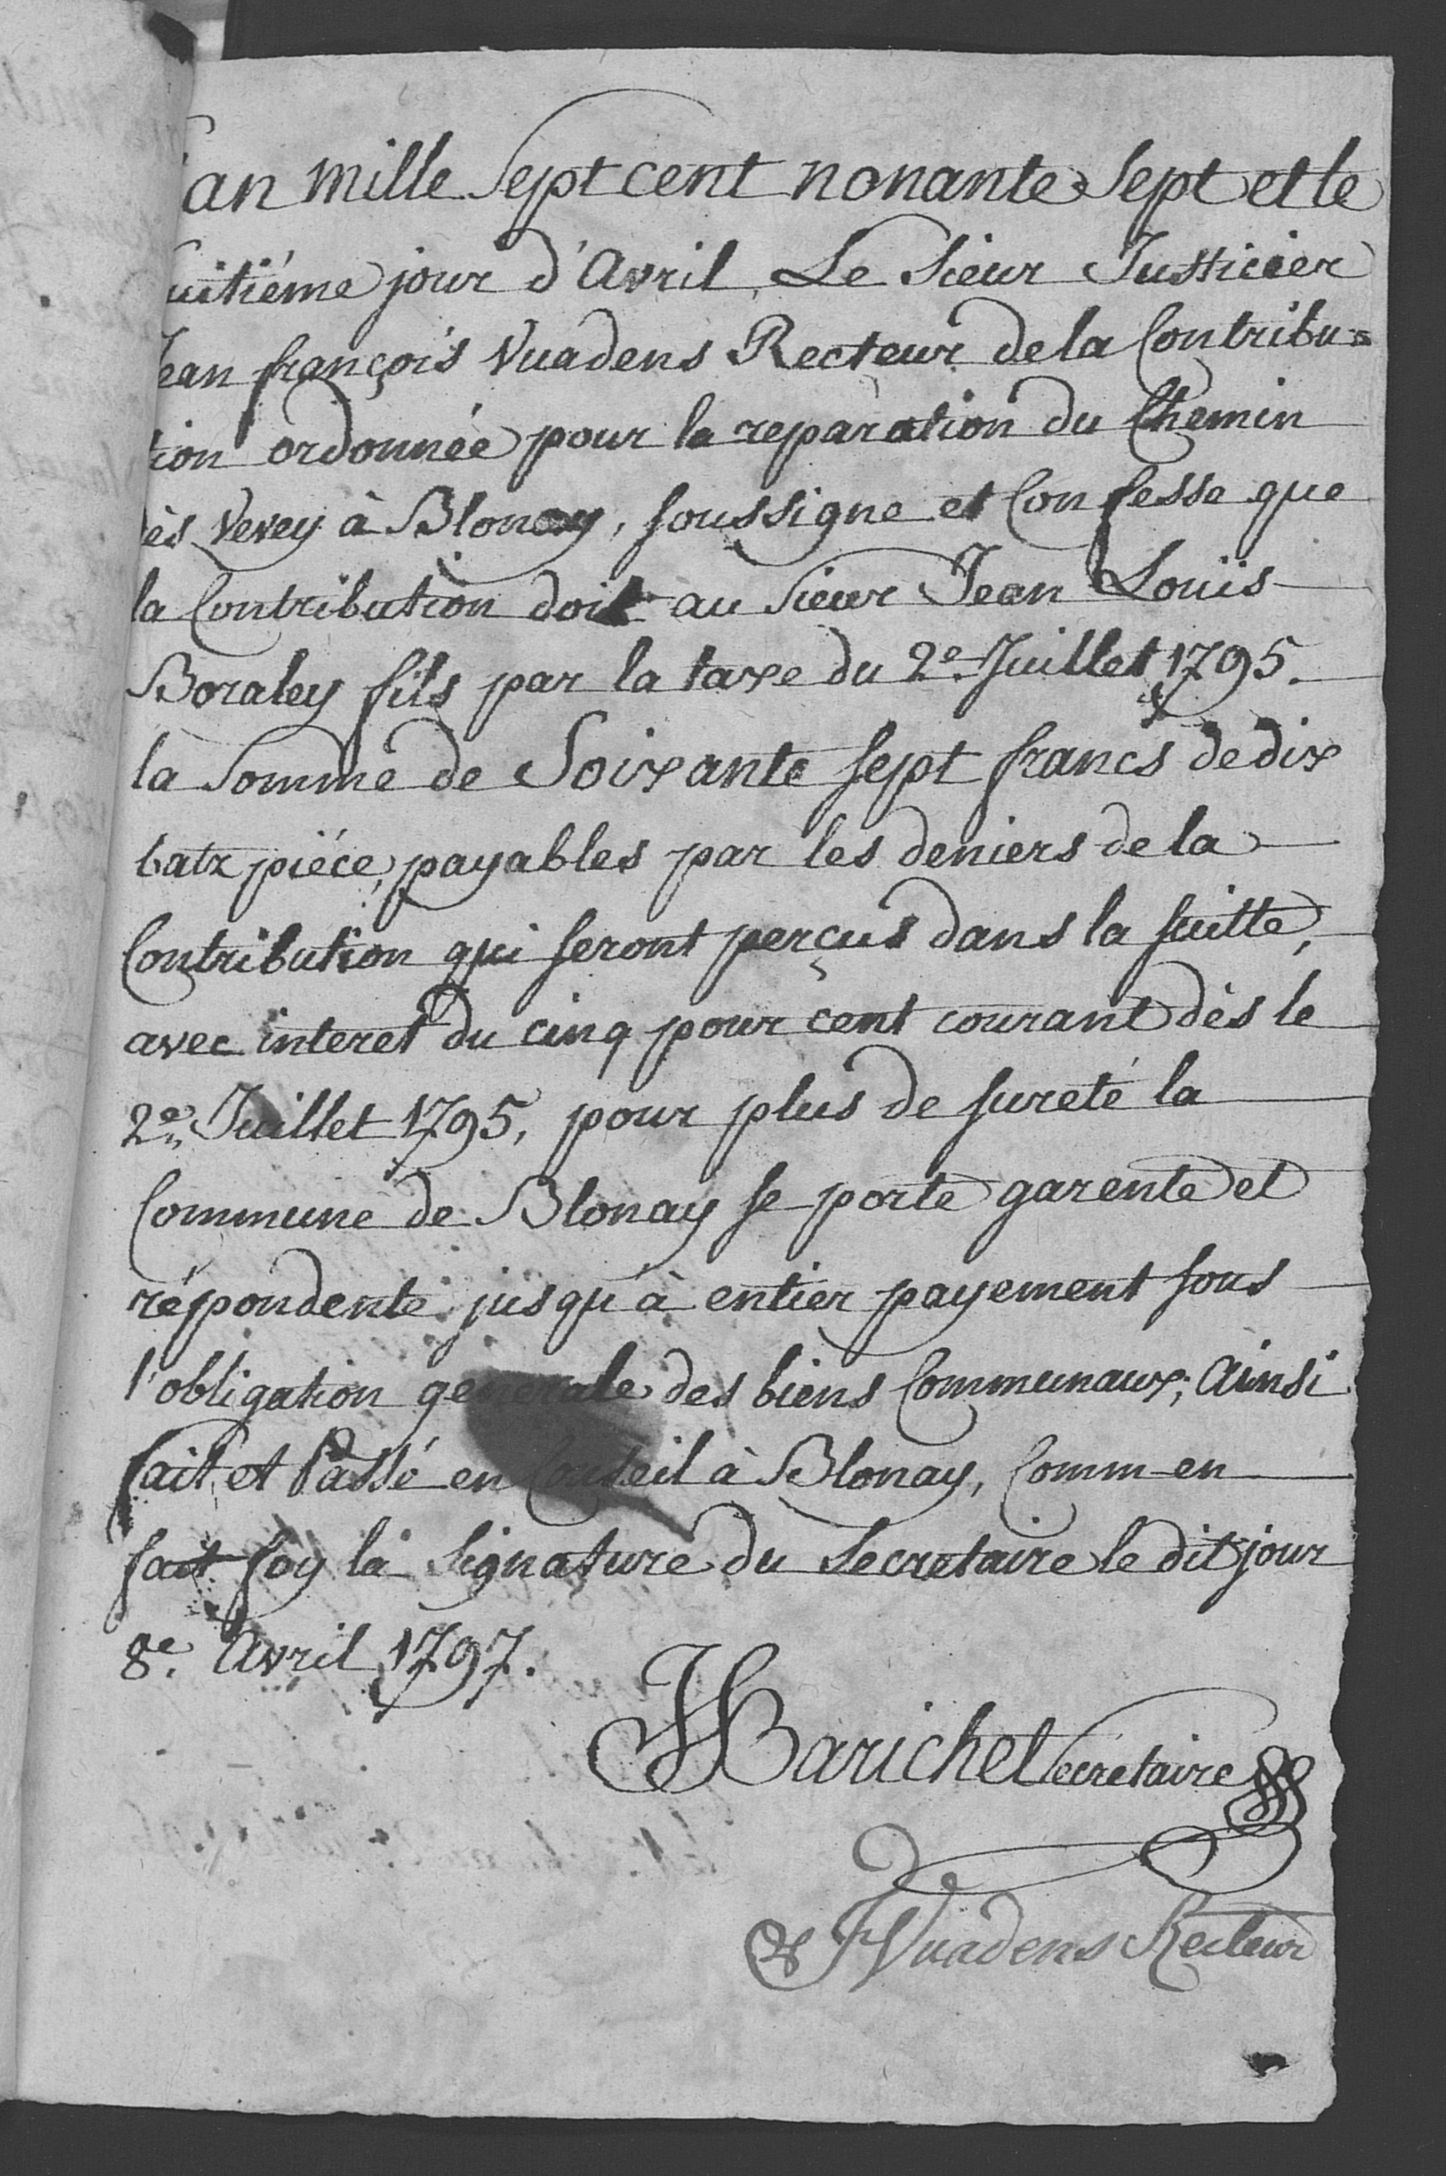 an mille Sept cent nonante Sept et le
uitiéme jour d'Avril, Le Sieur Justicier
Jean françois Vuadens Recteur de la Contribu=
tion ordonnée pour la reparation du Chemin
ès Vevey à Blonay, soussigne et Confesse que
la Contribution doit au Sieur Jean Louïs
Boraley fils par la taxe du 2e. Juillet 1795.
la Somme de Soixante sept francs de dix
batz piéce, payables par les deniers de la
Contribution qui seront perçus dans la suitte,
avec interet du cinq pour çent courant dès le
2e. Juillet 1795, pour plus de sureté la
Commune de Blonay se porte garente et
répondente jusqu'à entier payement sous
l'obligation generale des biens Communaux; Ainsi
fait et Passé en Conseil à Blonay, Comm-en
fait foy la Signature du Secretaire le dit jour
8e. Avril 1797.
JHBarichet Secretaire
JF Vuadens Recteur